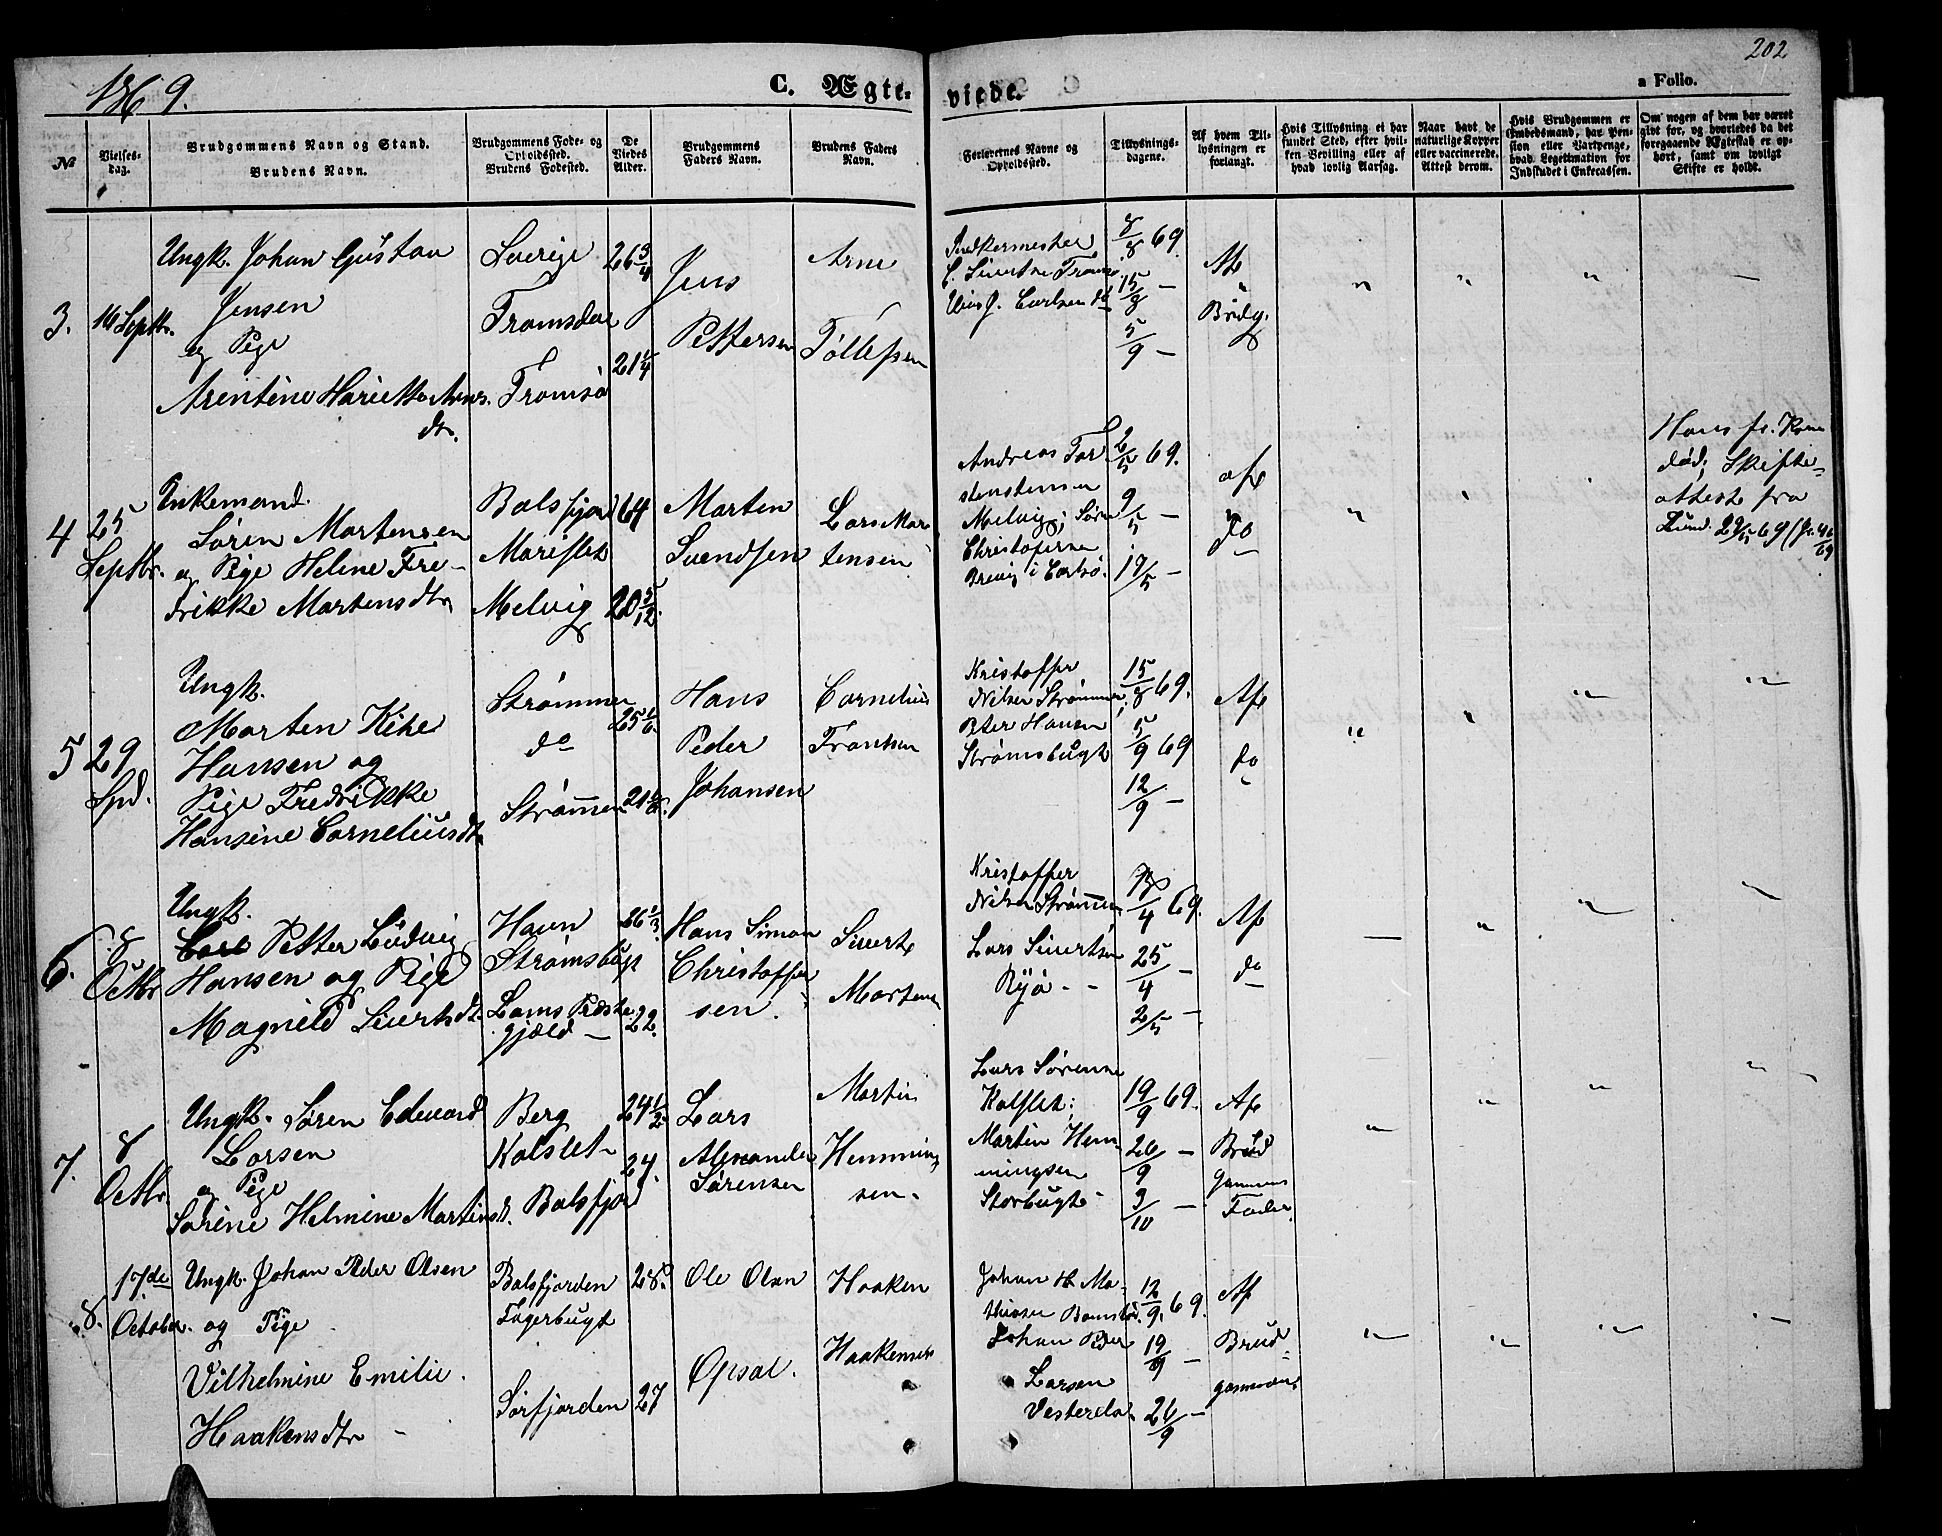 202
1869.
C. Ægte-
viede.
a Folio.
No
Vielses-
dag.
Brudgommens Navn og Stand.
Brudens Navn.
Brudgommens Føde- og
Opholdssted.
Brudens Fødested.
De
Viedes
Alder.
Brudgommens
Faders Navn.
Brudens Faders
Navn.
Forlovernes Navne og
Opholdssted.
Tillysnings-
dagene.
Af hvem Til-
lysningen er
forlangt.
Hvis Tillysning ei har
fundet Sted, efter hvil-
ken Bevilling eller af
hvad lovlig Aarsag.
Naar havt de
naturlige Kopper
eller vaccinerede.
Attest derom.
Hvis Brudgommen er
Embedsmand, har Pen-
sion eller Vartpenge,
hvad Legitimation for
Indskudet i Enkecassen.
Om nogen af dem har været
givt for, og hvorledes da det
foregaaende Ægteskab er op-
hørt, samt om lovligt
Skifte er holdt.
3.
16 Septbr.
Ungk. Johan Gustav
Jensen
og Pige
Arentine Hariette Arns
dr.
Sverige
Tromsdal
Tromsø
26 3/4
21 1/4
Jens
Pettersen
Arne
Tollefsen
C. Sivertsen Tromsø
J. Carlsen do
8/8 69.
15/8 —
5/9 —
Af
Brudg.
4
25
Septbr.
Enkemand
Søren Martensen
og Pige Helene Fre-
drikke Martensdtr
Balsfjord
Marislet
Melvig
64
20 5/12.
Morten
Svendsen
Lars Mar
tensen
Andreas Tor
stensen
Melvig; Søren
Christofersen
Brevig i Carlsø.
2/5 69.
9/5 —
17/5 —
af
do
Hans fr. Kone
død; Skifte-
atteste fra
Lund
5
29
Spd.
Ungk.
Morten Kihe
Hansen og
Pige Fredrikke
Hansine Corneliusdtr
Strømmen
do
Strømmen
25 1/6
21
Hans
Peder
Johansen
Cornelius
Frantsen
Kristoffer
Nilsen Strømmen;
Peter Hansen
Strømsbugt
15/8 69.
5/9 69
12/9 —
Af
do
6.
8
Octbr
Ungk.
Carl Petter Ludvig
Hansen og Pige
Magnild Sivertsdtr
Havn
Strømsbugt
Loms Præste
gjæld —
26 1/3.
22.
Hans Simon
Christoffer
sen.
Sivert
Morten
Kristoffer
Nilsen Strømmen
Lars Sivertsen
Ryø - -
/4 69.
25/4 —
2/5 —
Af
do
7.
8
Octbr.
Ungk. Søren Edevard
Larsen
og Pige
Sørine Helmine Martinsd.
Berg
Kolslet
Balsfjord
24 1/2
24.
Lars
Alexander
Sørensen
Martin
Hemming
sen.
Lars Sørensen
Kolslet;
Martin Hem
mingsen
Storbugt
19/9 69.
26/9 —
3/10 —
Af
Brud
gommens
Fader.
8.
17.de
October
Ungk. Johan Peder Olsen
og Pige
Vilhelmine Emilie
Haakensdtr
Balsfjorden
Fagerbugt
Sørfjorden
28.
27
Ole Olsen
Opsal.
Haaken
Haakensen
Johan H. Ma-
thisen
Johan Peder
Larsen
Vesterdal
12/9. 69.
19/9 —
26/9 —
Af
Brud
gommen